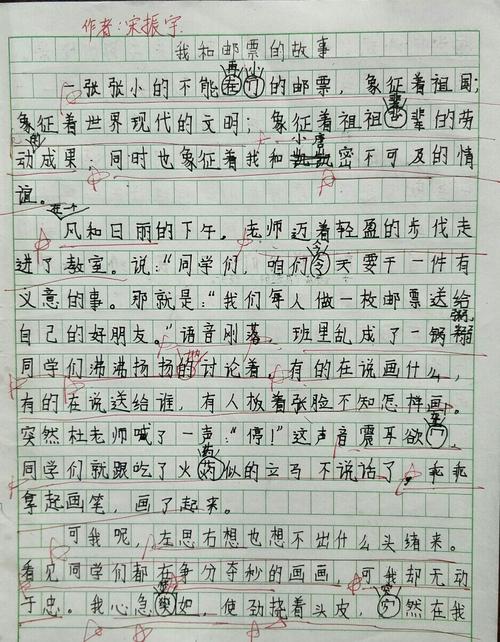 作者:宋振宇
我和邮票的故事
一张张小的不能再小的邮票,象征着祖国;
象征着世界现代的文明;象征着祖祖辈辈的劳
动成果;同时也象征着我和小唐密不可及的情
谊。
在一个
风和日丽的下午。老师迈着轻盈的步伐走
进了教室。说:“同学们,咱们今天要干一件有
义意的事。那就是:“我们每人做一枚邮票送给
自己的好朋友。”语音刚落,班里乱成了一锅粥,
同学们沸沸扬扬的讨论着,有的在说画什么,
有的在说送给谁,有人板着张脸不知怎样画。
突然杜老师喊了一声:“停!”这声音震耳欲聋,
同学们就跟吃了火药似的立马不说话了,乖乖
拿起画笔,画了起来。
可我呢,左思右想也想不出什么头绪来。
看见同学们都在争分夺秒的画画,可我却无动
于忠。我心急如,使劲挠着头皮,突然在我